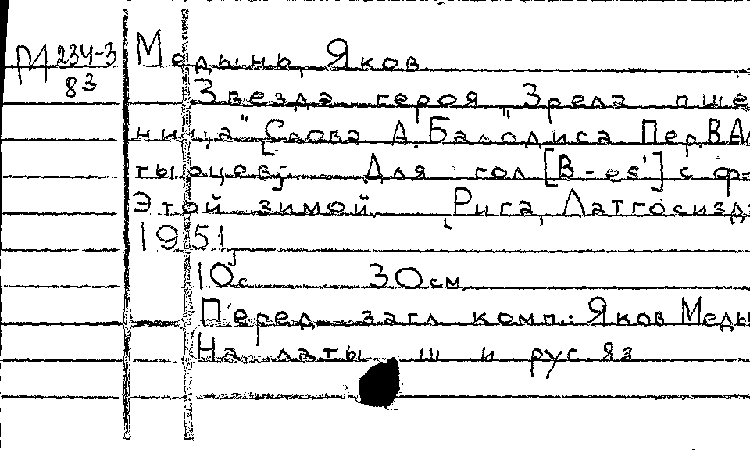 М 234-3
83
Медынь, Яков
Звезда героя "Зрела пше-
ница" [Слова А. Балодиса Пер. В. Ал
тырцев]. Для гол [B-es'] с ф-
Этой зимой [Рига, Латгосизд
1951]
10с 30см
Перед загл комп.: Яков Меды
На латыш и рус яз